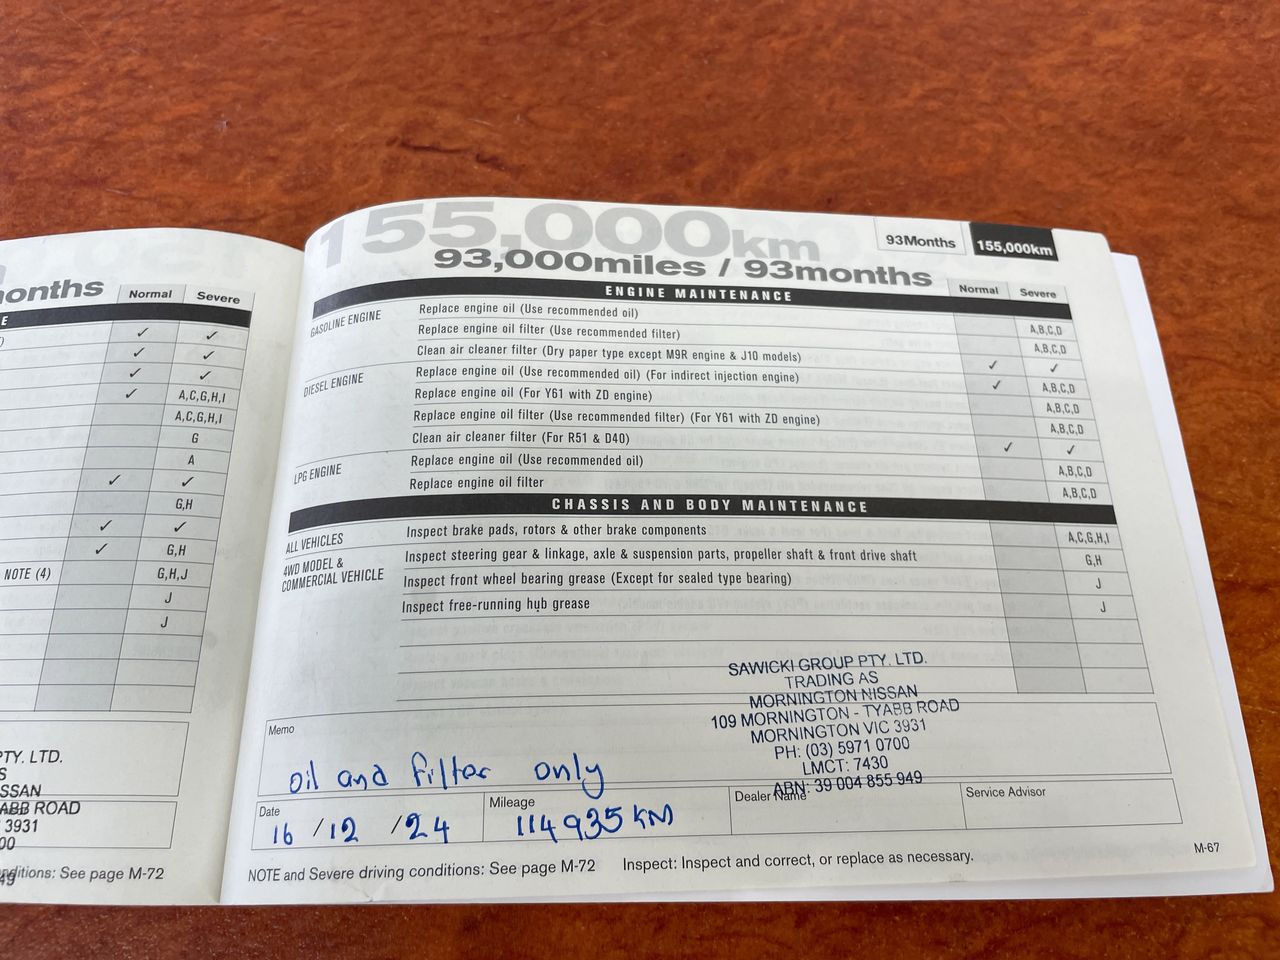 onths
Normal Severe
E
)
✓ ✓
✓ ✓
✓ ✓
✓ A,C,G,H,I
A,C,G,H,I
G
A
✓ ✓
G,H
✓ ✓
✓ G,H
NOTE (4) G,H,J
J
J
PTY. LTD.
S
SSAN
ABB ROAD
3931
00
nditions: See page M-72
49
155,000km
93Months 155,000km
93,000miles / 93months
Normal Severe
ENGINE MAINTENANCE
GASOLINE ENGINE Replace engine oil (Use recommended oil) A,B,C,D
Replace engine oil filter (Use recommended filter) A,B,C,D
Clean air cleaner filter (Dry paper type except M9R engine & J10 models) ✓ ✓
DIESEL ENGINE Replace engine oil (Use recommended oil) (For indirect injection engine) ✓ A,B,C,D
Replace engine oil (For Y61 with ZD engine) A,B,C,D
Replace engine oil filter (Use recommended filter) (For Y61 with ZD engine) A,B,C,D
Clean air cleaner filter (For R51 & D40) ✓ ✓
LPG ENGINE Replace engine oil (Use recommended oil) A,B,C,D
Replace engine oil filter A,B,C,D
CHASSIS AND BODY MAINTENANCE
ALL VEHICLES Inspect brake pads, rotors & other brake components A,C,G,H,I
4WD MODEL & Inspect steering gear & linkage, axle & suspension parts, propeller shaft & front drive shaft G,H
COMMERCIAL VEHICLE Inspect front wheel bearing grease (Except for sealed type bearing) J
Inspect free-running hub grease J
SAWICKI GROUP PTY. LTD.
TRADING AS
MORNINGTON NISSAN
109 MORNINGTON - TYABB ROAD
MORNINGTON VIC 3931
PH: (03) 5971 0700
LMCT: 7430
ABN: 39 004 855 949
Memo
oil and filter only
Date Mileage Dealer Name Service Advisor
16 /12 /24 114935 KM
M-67
NOTE and Severe driving conditions: See page M-72 Inspect: Inspect and correct, or replace as necessary.